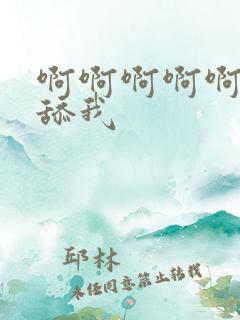 啊啊啊啊啊
舔我
邱林
未经同意禁止转载